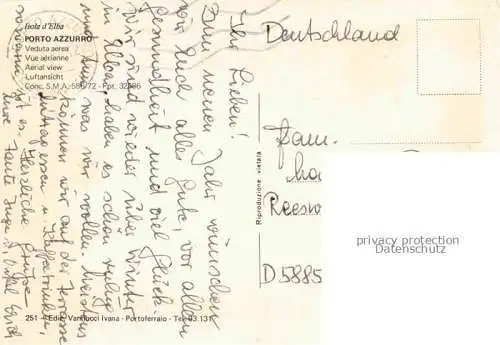 Isola d'Elba
PORTO AZZURRO
Veduta aerea
Vue aérienne
Aerial view
Luftansicht
Conc. S.M.A. 586/72 - Fpt.
Ihr Lieben!
Zum neuen Jahr wünschen
wir Euch alles Gute, vor allem
Gesundheit und viel Glück.
Wir sind wieder über Winter
in Elba, haben es schön ruhig
und tun was wir wollen. Meistens
können wir auf der Terrasse
Mittag essen u. Kaffee trinken,
so warm ist es. Herzliche Grüße
Eure Tante Inge u. Onkel Erich
251 - Ediz. Vannucci Ivana - Portoferraio - Tel. 93.131
Riproduzione vietata
Deutschland
Fam.
Ha
Reesw
D5885
privacy protection
Datenschutz